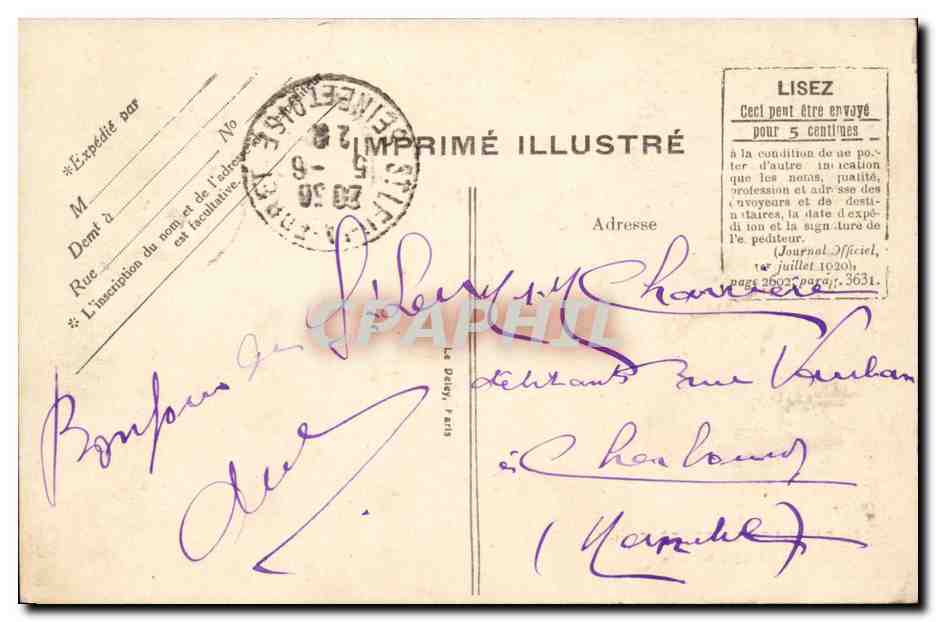 *Expédié par
M
Demt à
No
Rue
* L'inscription du nom et de l'adresse
est facultative.
ST LEU-LA-FORET
SEINE ET OISE
20 30
5 -6
IMPRIMÉ ILLUSTRÉ
LISEZ
Ceci peut être envoyé
pour 5 centimes
à la condition de ne por-
ter d'autre indication
que les noms, qualité,
profession et adresse des
envoyeurs et de desti-
nataires, la date d'expé-
dition et la signature de
l'expéditeur.
(Journal Officiel,
1er juillet 1920),
page 2602, parag. 3631.
Adresse
Bonjour de St Leu
M. Charrière
débitant rue Vauban
à Cherbourg
(Manche)
Le Deley, Paris
CPAPHIL